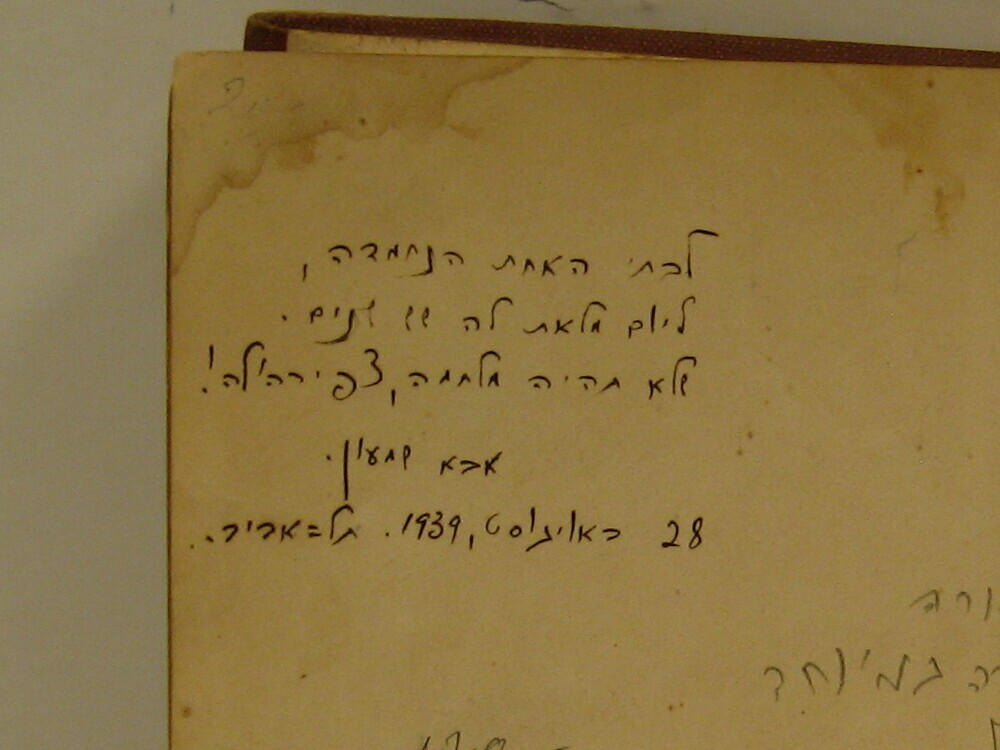 לבתי האחת הנחמדה,
ליום מלאת לה שש שנים.
שלא תהיה מלחמה, צפירה'לה!
אבא שמעון.
28 באויגוסט, 1939. תל=אביב.
במיוחד